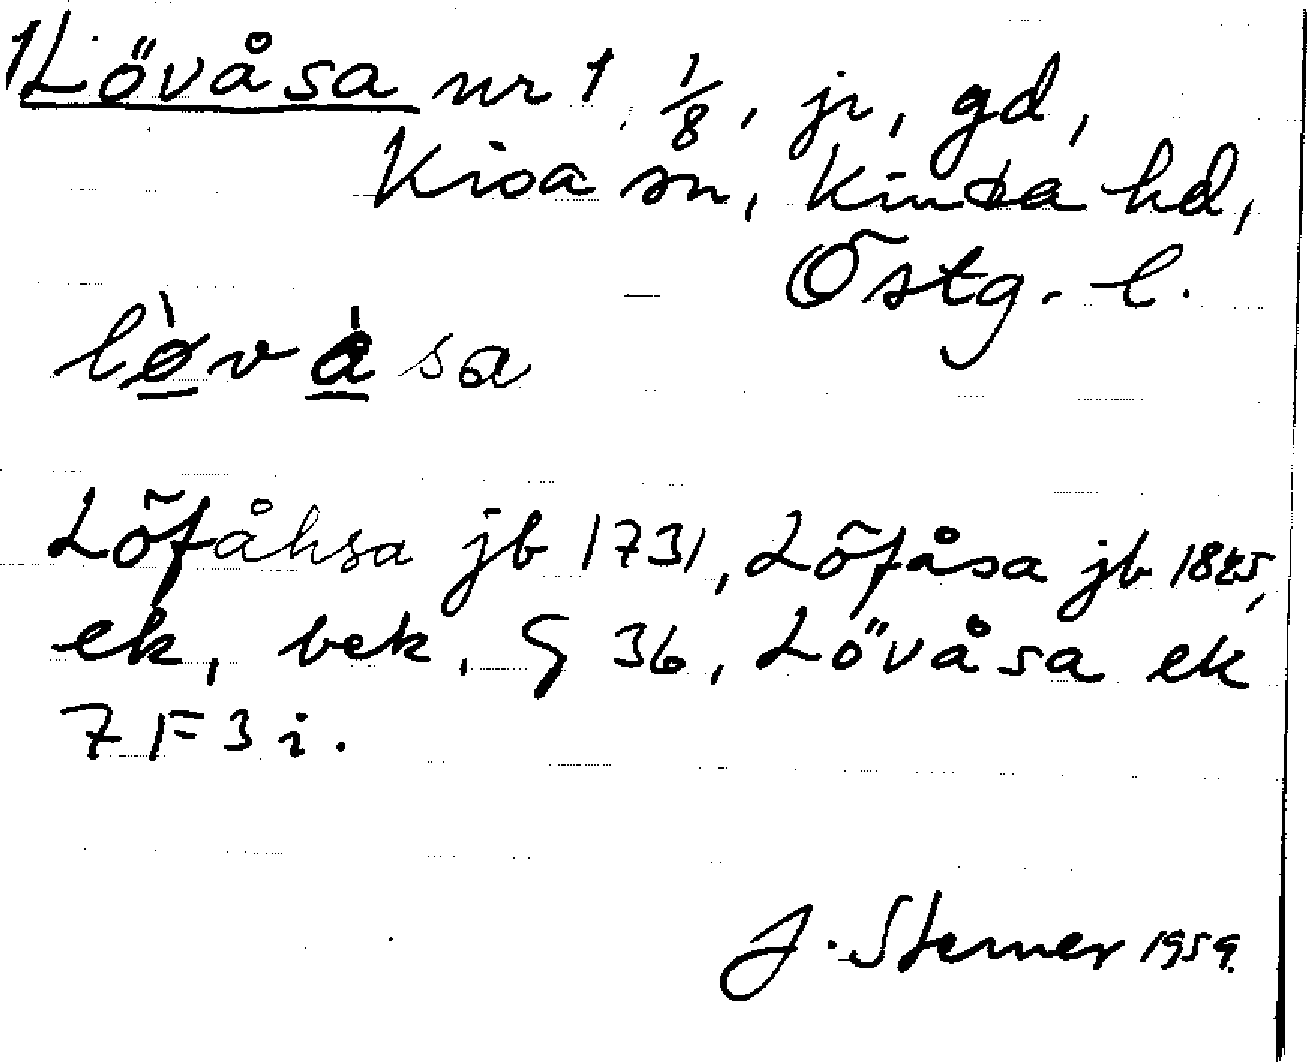 1 Lövåsa nr 1, 1/8, jr, gd,
Kisa sn, Kinda hd,
Östg. l.
lø̀vàsa
Löfåhsa jb 1731, Löfåsa jb 1825,
ek, bek. G 36, Lövåsa ek
7 F 3 i.
J. Sterner 1959.